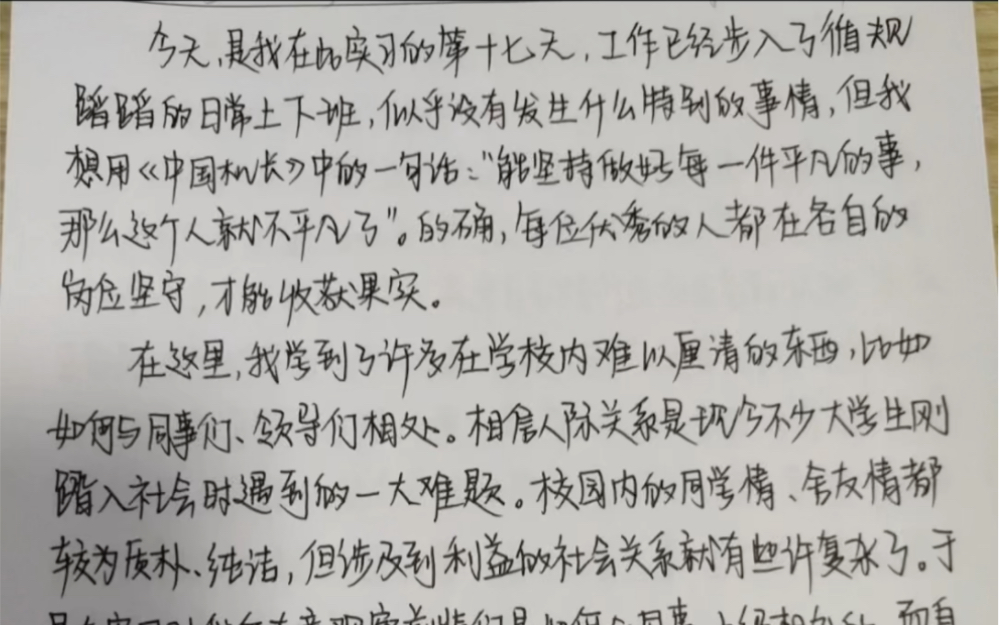 今天,是我在此实习的第十七天,工作已经步入了循规
蹈蹈的日常上下班,似乎没有发生什么特别的事情,但我
想用《中国机长》中的一句话:"能坚持做好每一件平凡的事,
那么这个人就不平凡了"。的确,每位优秀的人都在各自的
岗位坚守,才能收获果实。
在这里,我学到了许多在学校内难以厘清的东西,比如
如何与同事们、领导们相处。相信人际关系是现今不少大学生刚
踏入社会时遇到的一大难题。校园内的同学情、舍友情都
较为质朴、纯洁,但涉及到利益的社会关系就有些许复杂了。于